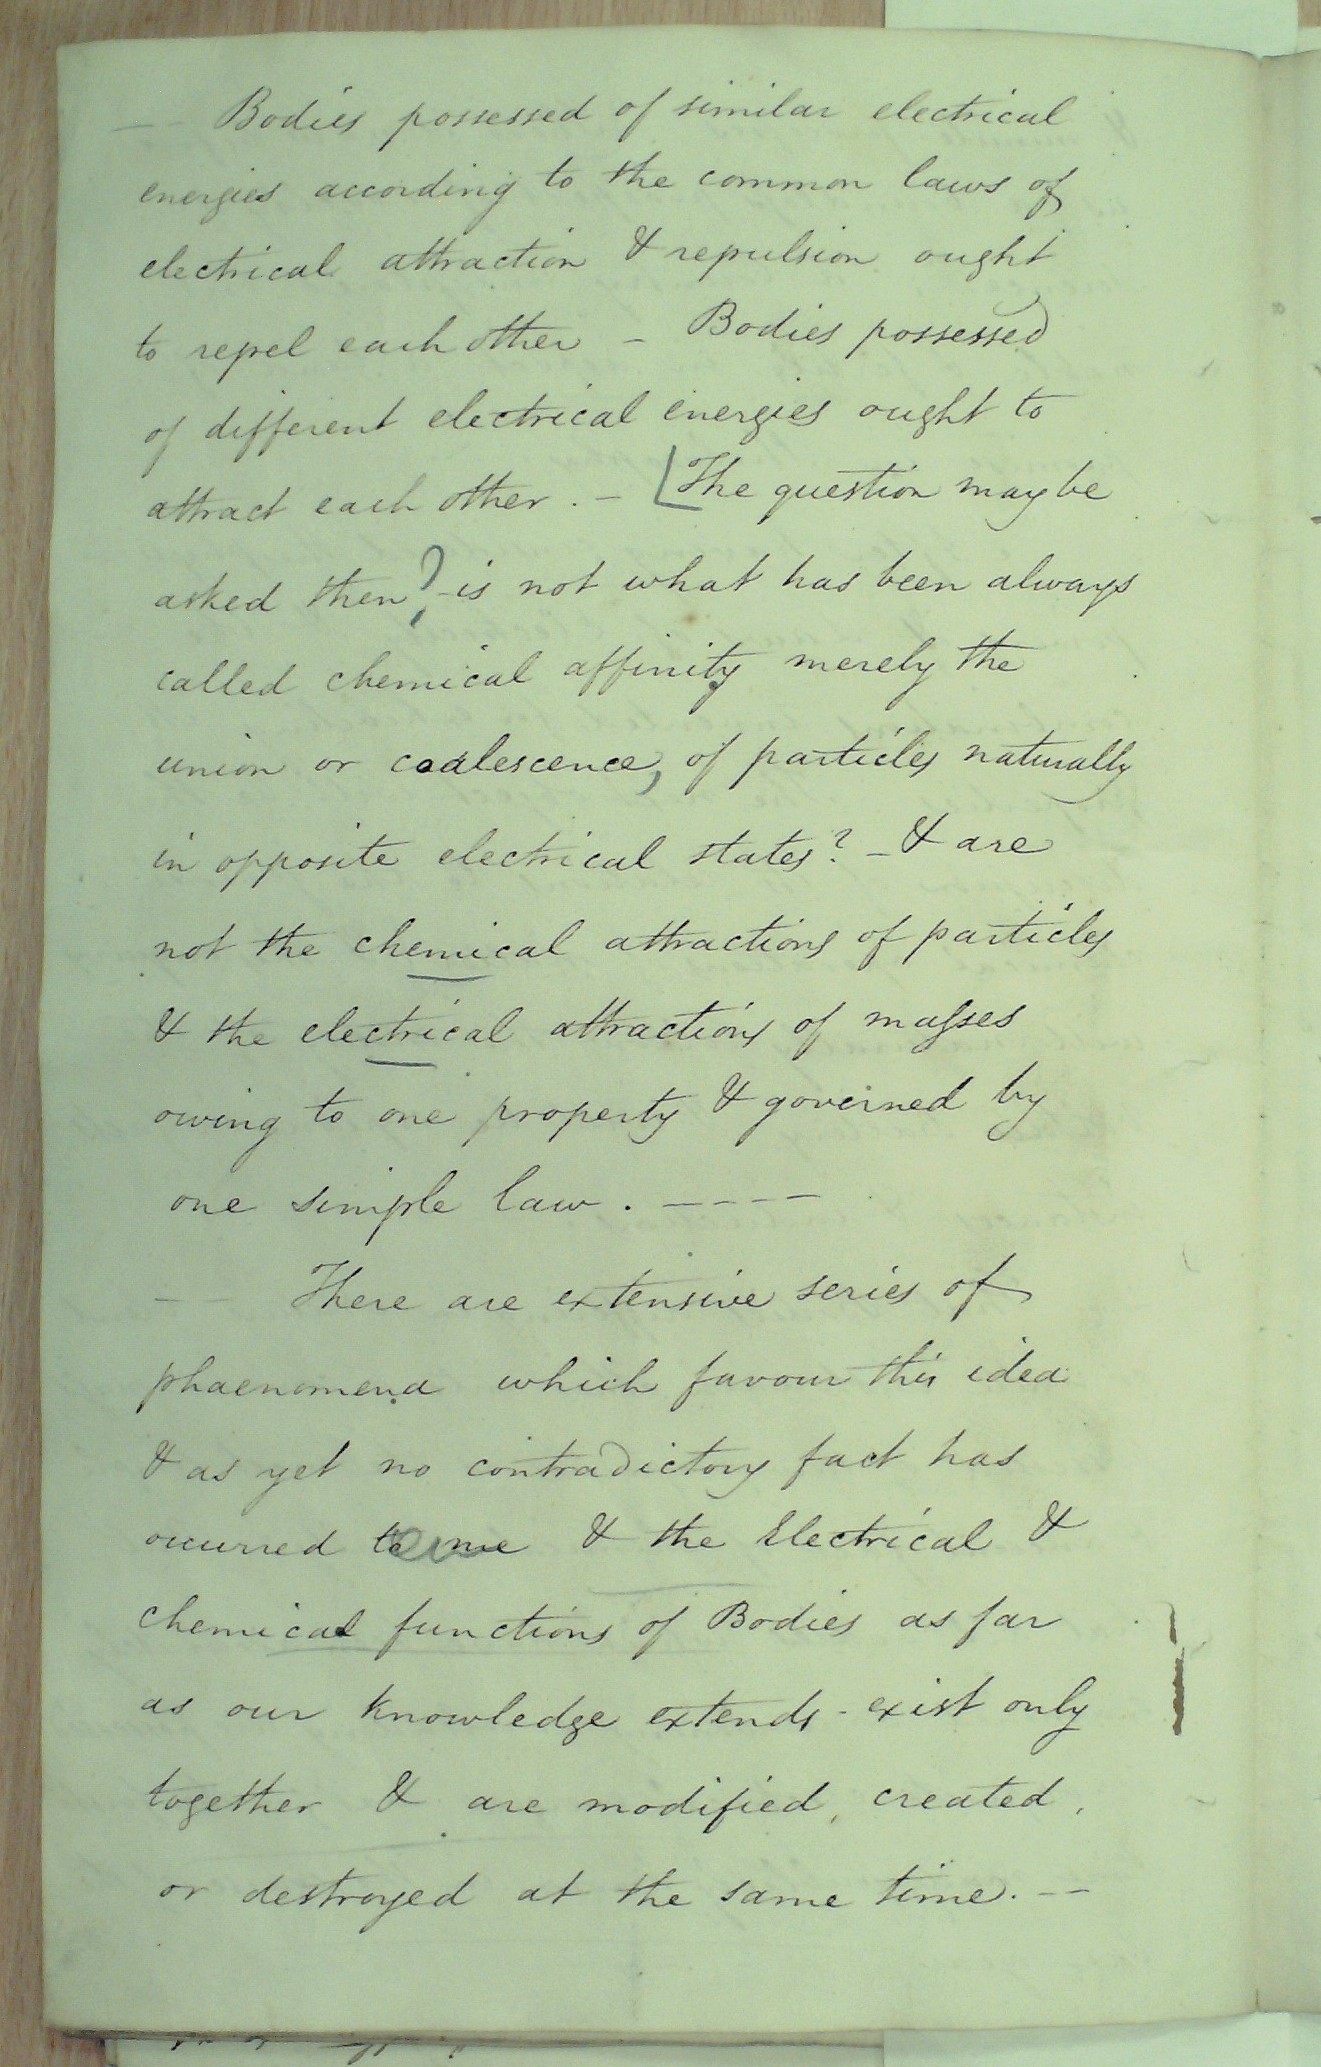 — Bodies possessed of similar electrical
energies according to the common laws of
electrical attraction & repulsion ought
to repel each other – Bodies possessed
of different electrical energies ought to
attract each other. – [The question may be
asked then? – is not what has been always
called chemical affinity merely the
union or coalescence, of particles naturally
in opposite electrical states? – & are
not the chemical attractions of particles
& the electrical attractions of masses
owing to one property & governed by
one simple law. – – – –
— There are extensive series of
phaenomena which favour this idea
& as yet no contradictory fact has
occurred to me & the Electrical &
chemical functions of Bodies as far
as our knowledge extends - exist only
together & are modified, created,
or destroyed at the same time. – –